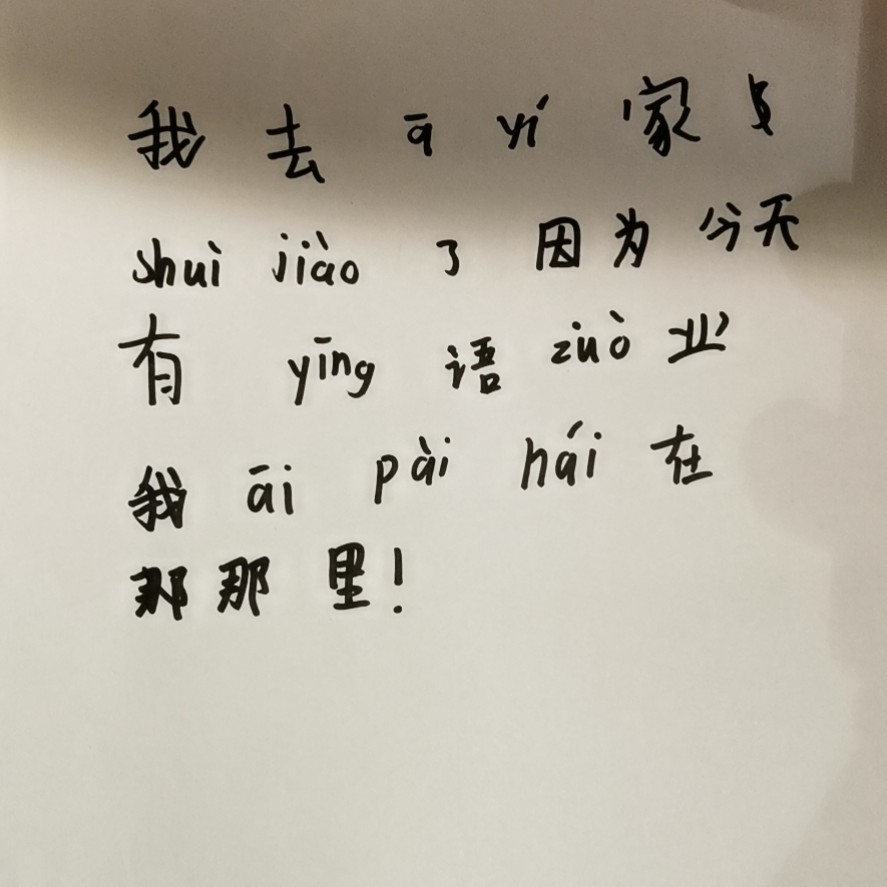 我 去 ā yí 家
shuì jiào 了 因为 今天
有 yīng 语 zuò 业
我 āi pài hái 在
那 那 里！